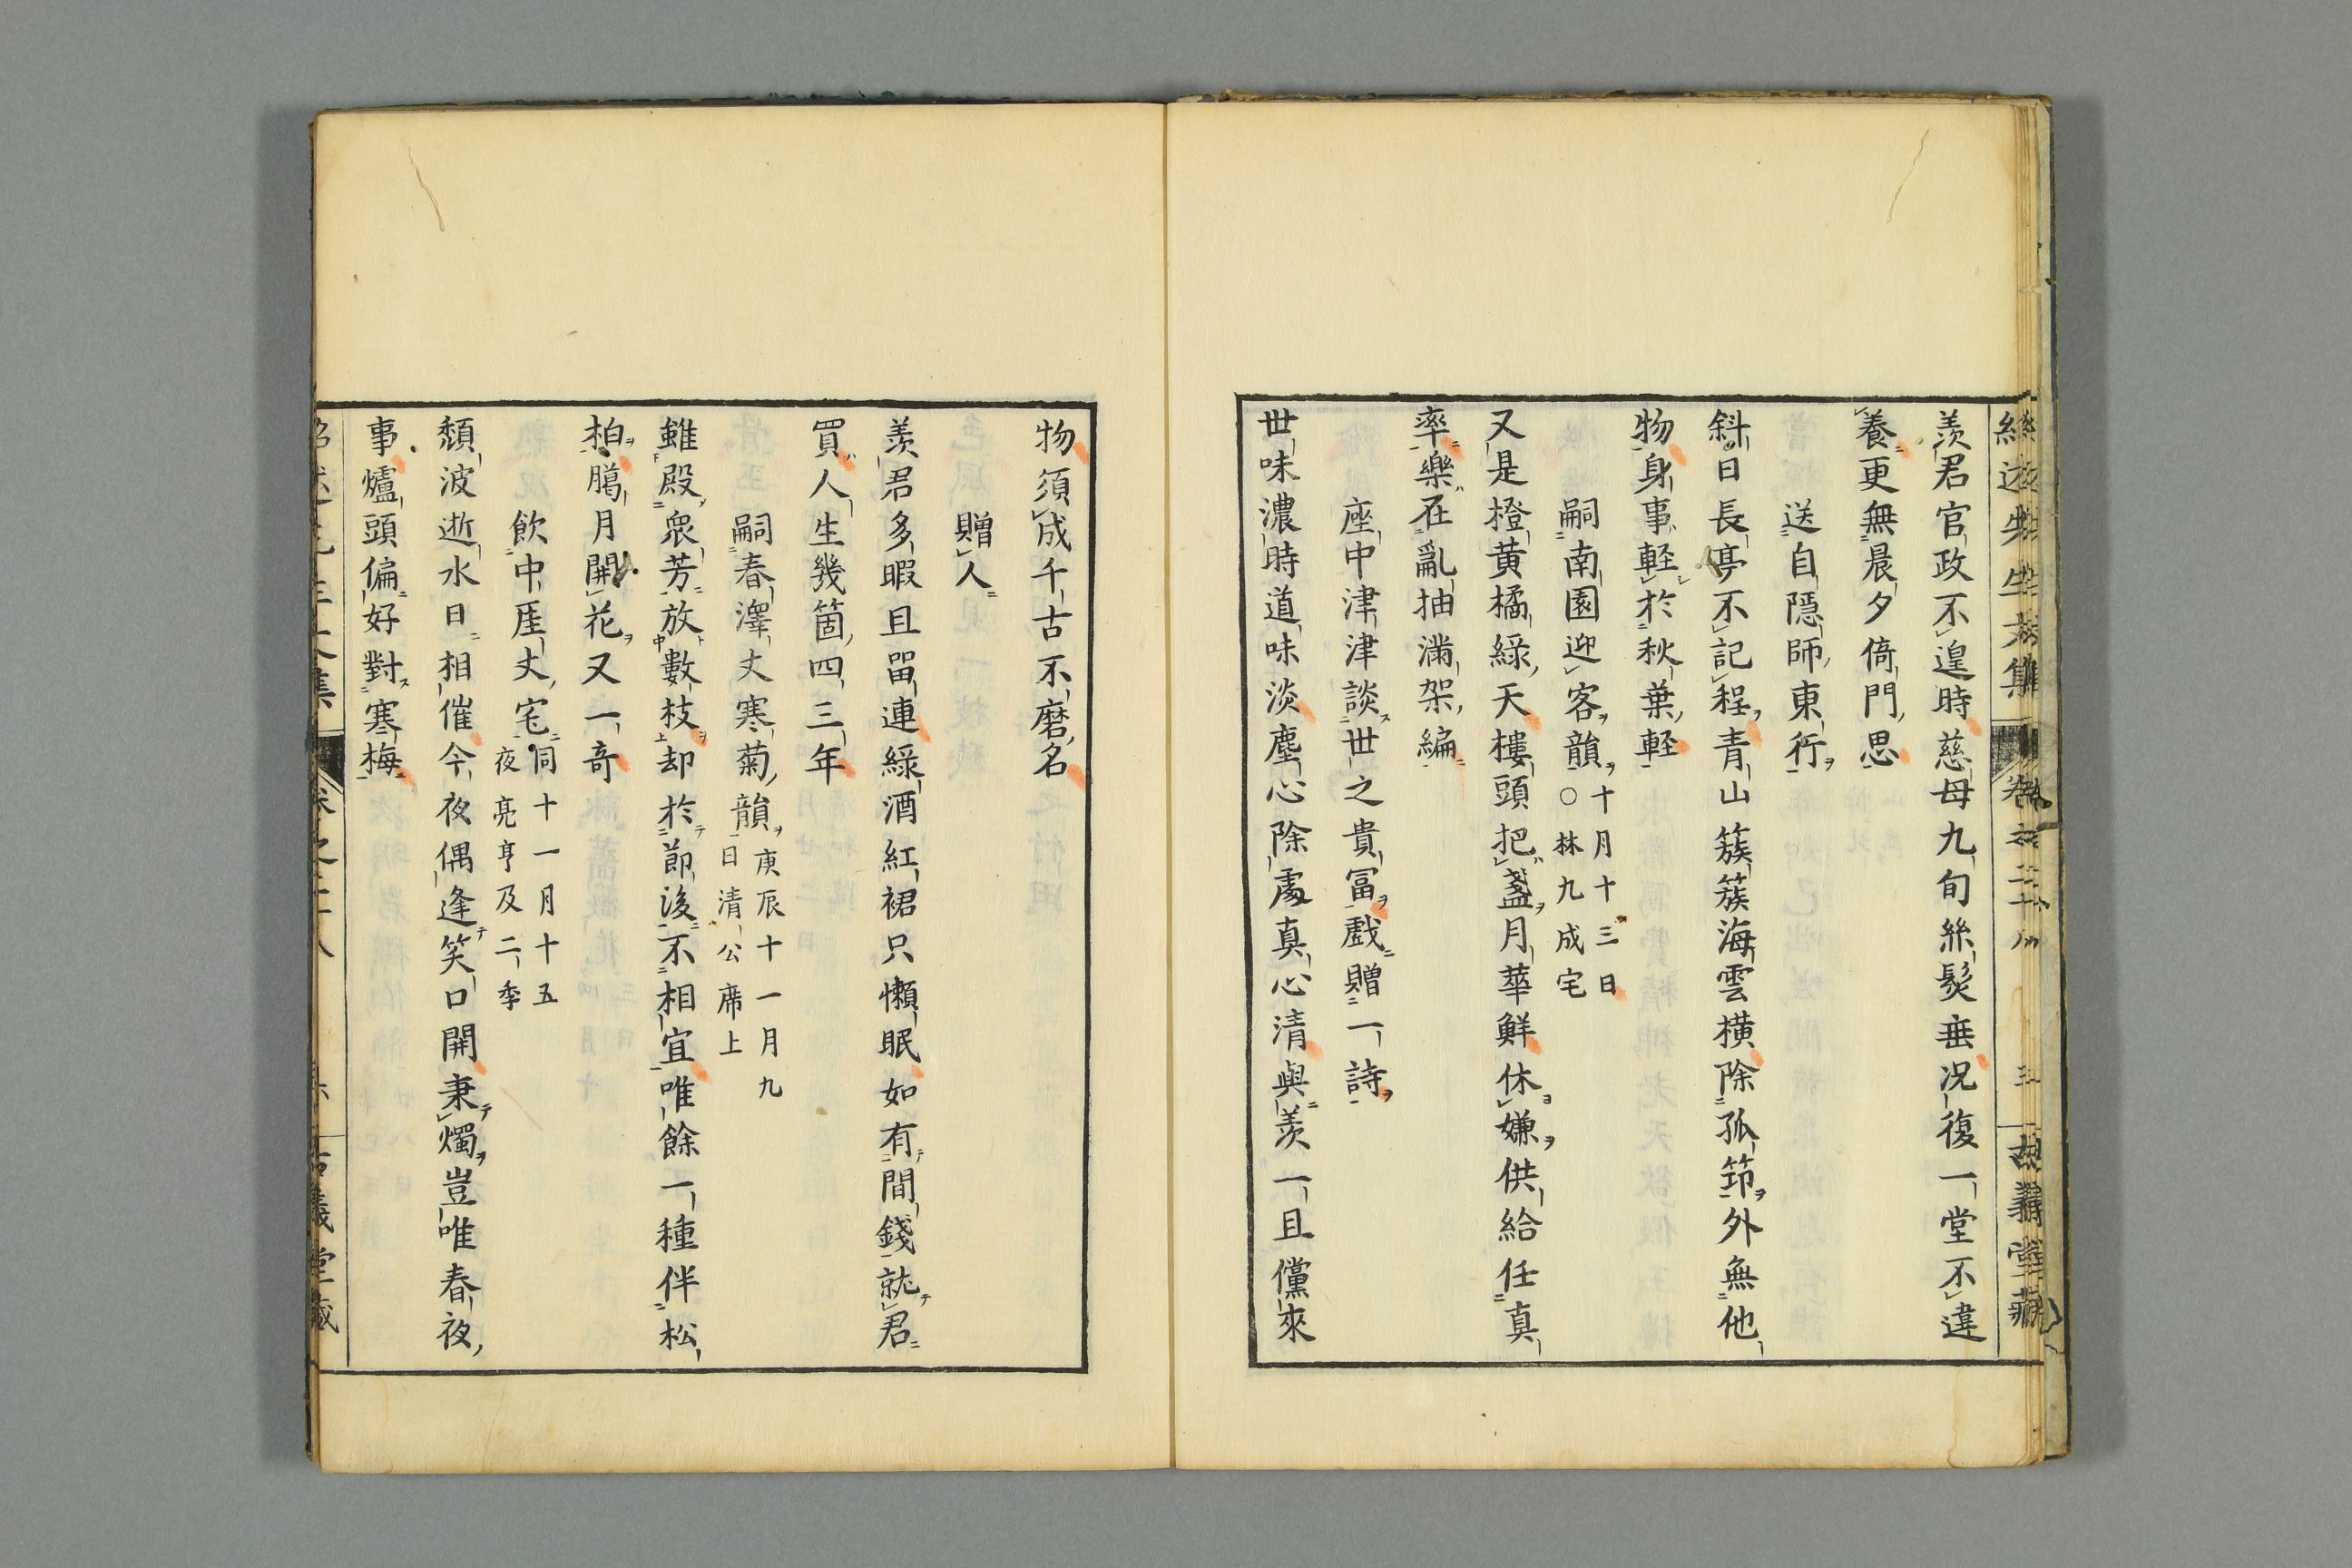 羨君官政不遑時慈母九旬絲髮垂況復一堂不違
養更無晨夕倚門思
送自隱師東行
斜日長亭不記程青山簇簇海雲橫除孤筇外無他
物身事輕於秋葉輕
嗣南園迎客韻十月十三日
○林九成宅
又是橙黃橘綠天樓頭把盞月華鮮休嫌供給任真
率樂在亂抽滿架編
座中津津談世之貴冨戲贈一詩
世味濃時道味淡塵心除處真心清與羨一旦儻來
物須成千古不磨名
贈人
羨君多暇且畱連綠酒紅裙只懶眠如有間錢就君
買人生幾箇四三年
嗣春澤丈寒菊韻庚辰十一月九
日清公席上
雖殿衆芳放數枝却於節後不相宜唯餘一種伴松
柏臈月開花又一奇
飲中厓丈宅同十一月十五
夜亮亨及二季
頹波逝水日相催今夜偶逢笑口開秉燭豈唯春夜
事爐頭偏好對寒梅